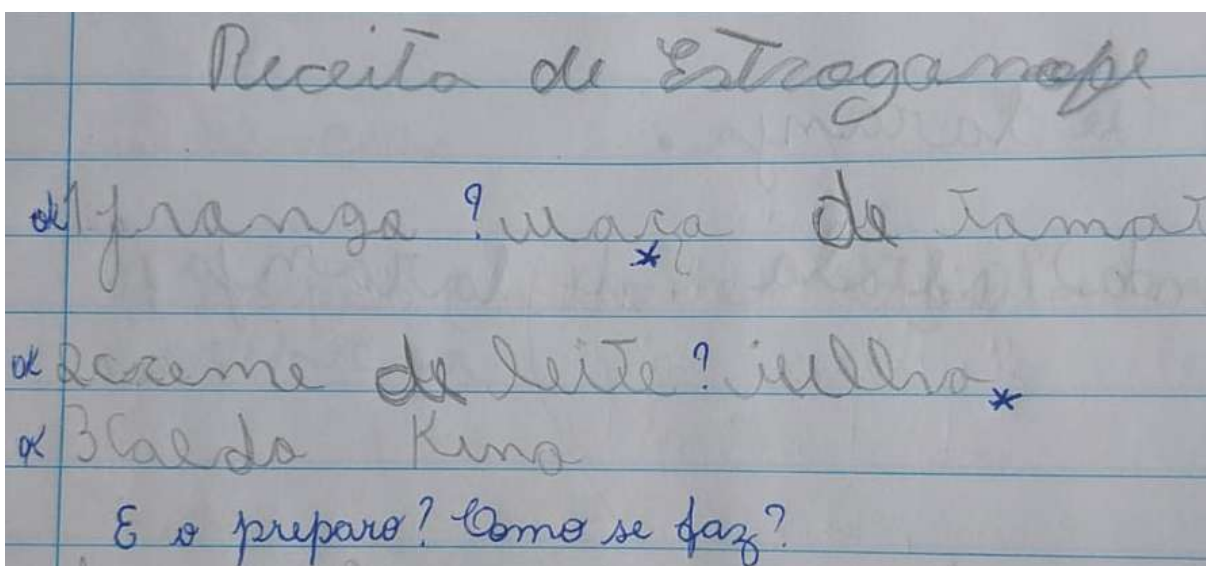 Receita de Estroganofe
ok 1 frango ? maça de tamat
ok 2 creme de leite ? iulho
ok 3 Caldo Kino
E o preparo? Como se faz?